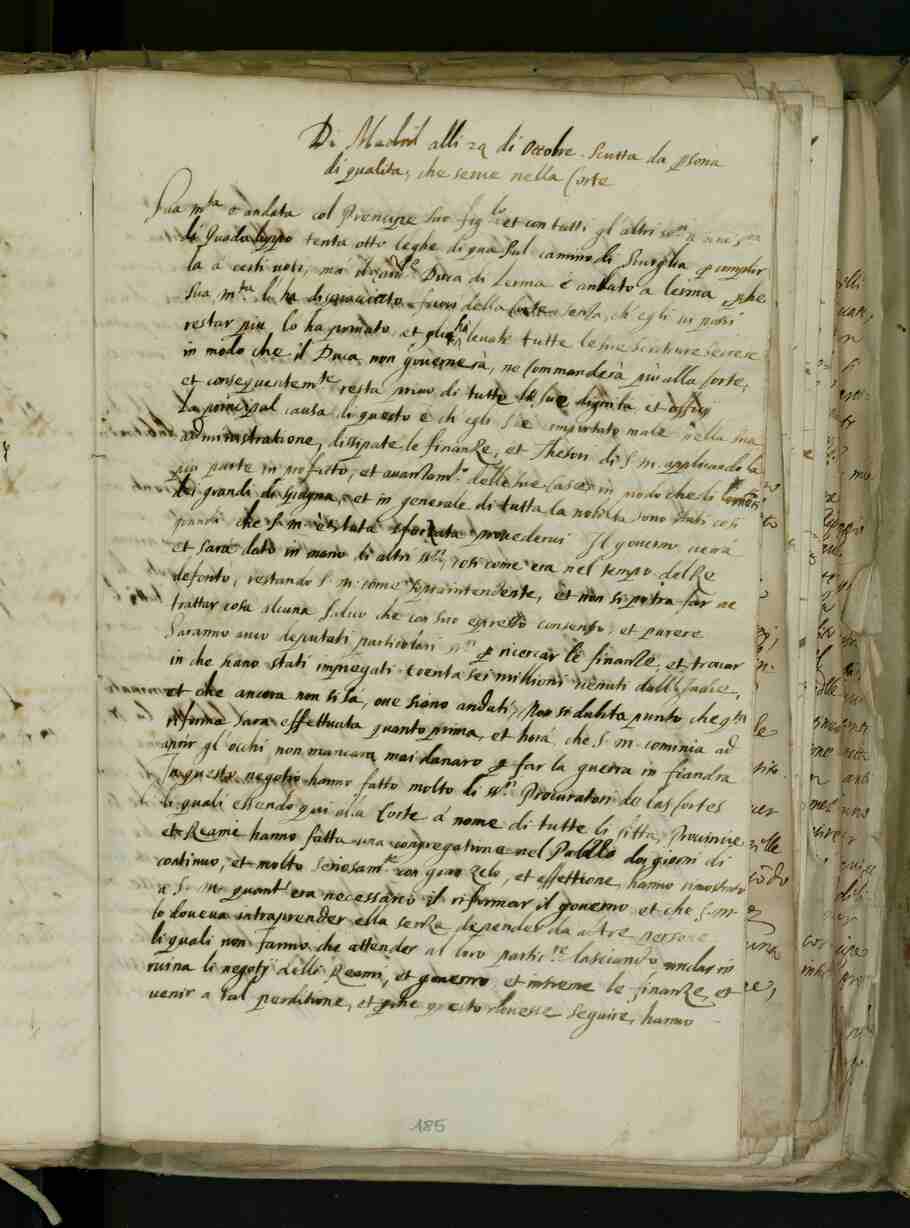 Di Madril alli 29 di Ottobre. Scritta da psona
di qualità, che serue nella Corte
Sua m.ta è andata col Prencipe suo fig.lo et con tutti gl'altri
di Guadalippo trenta otto leghe di qua sul camino di Siuiglia p compir
la à certi uoti, mà il Duca di Lerma è andato a lerma, pche
sua m.ta li ha discacciato fuori della Corte senza, ch'egli ui possi
restar più, lo ha priuato, et gli ha leuate tutte le sue scritture secrete
in modo che il Duca non gouernerà, ne commanderà più alla Corte,
et conseguentem.te resta priuo di tutte le sue dignità, et offitij
La principal causa di questo è ch'egli s'è importato male nella sua
administratione, dissipate le finanze, et Thesori di S. m. applicando la
più parte in profitto, et auanzam.to delle sue case in modo che li
dei grandi di Spagna, et in generale di tutta la nobiltà sono stati così
grandi che S. m. è stata sforzata prouederui Il gouerno uerrà
et sarà dato in mano di altri ss.ri, così come era nel tempo del Re
defonto, restando S. m. come sopraintendente, et non si potrà far ne
trattar cosa alcuna saluo che con suo espresso consenso, et parere
Saranno anco deputati particolari ss.ri p ricercar le finanze, et trouar
in che siano stati impiegati trenta sei millioni uenuti dall'Indie,
et che ancora non si sà, oue siano andati, Non si dubita punto che q.sta
riforma sarà effettuata quanto prima, et horà, che S. m. comincia ad
aprir gl'occhi non mancarà mai danaro p far la guerra in fiandra
In questo negotio hanno fatto molto li ss.ri Procuratori de las Cortes
li quali essendo qui alla Corte à nome di tutte li Città, Prouincie
et Reami hanno fatta una congregatione nel Palazzo doi giorni di
continuo, et molto seriosam.te con gran zelo, et affettione hanno rimostrato
a S. m. quant'era necessario il riformar il gouerno et che S. m.
lo doueua intraprender ella senza depender da altre persone
li quali non fanno che attender al loro partic.re lasciando andar in
ruina li negotij delli Reami, et gouerno, et insieme le finanze, et
uenir a tal perditione, et pche questo douesse seguire, hanno
185